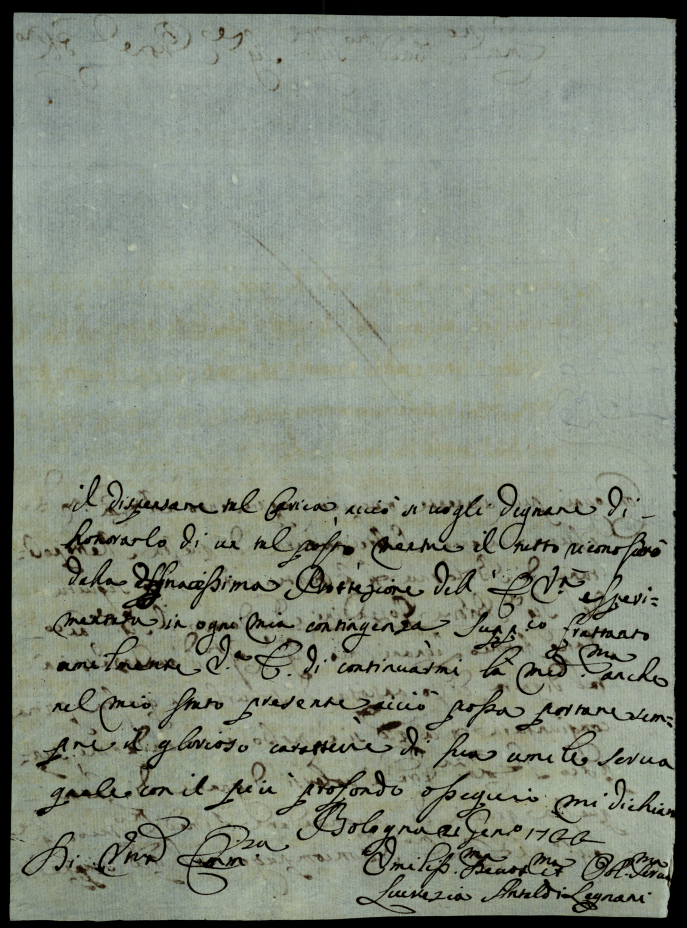 il dispensare tal Carica acciò si vogli degnare di
honorarlo di un tal posto mentre il tutto riconoscerò
della Protezione dell' E. V.ra esperi=
mentata in ogni mia contingenza. Supp.co frattanto
umilmente V.a E. di continuarmi la med.ma anche
nel mio stato presente acciò possa portare sem=
pre il glorioso carattere di sua umile serva
quale con il più profondo ossequio mi dichiaro
Bologna Genº 1722
Di Vrā Ecm.za
Umiliss.ma Devot.ma Obl.ma Serva
Lucrezia Antaldi Legnani